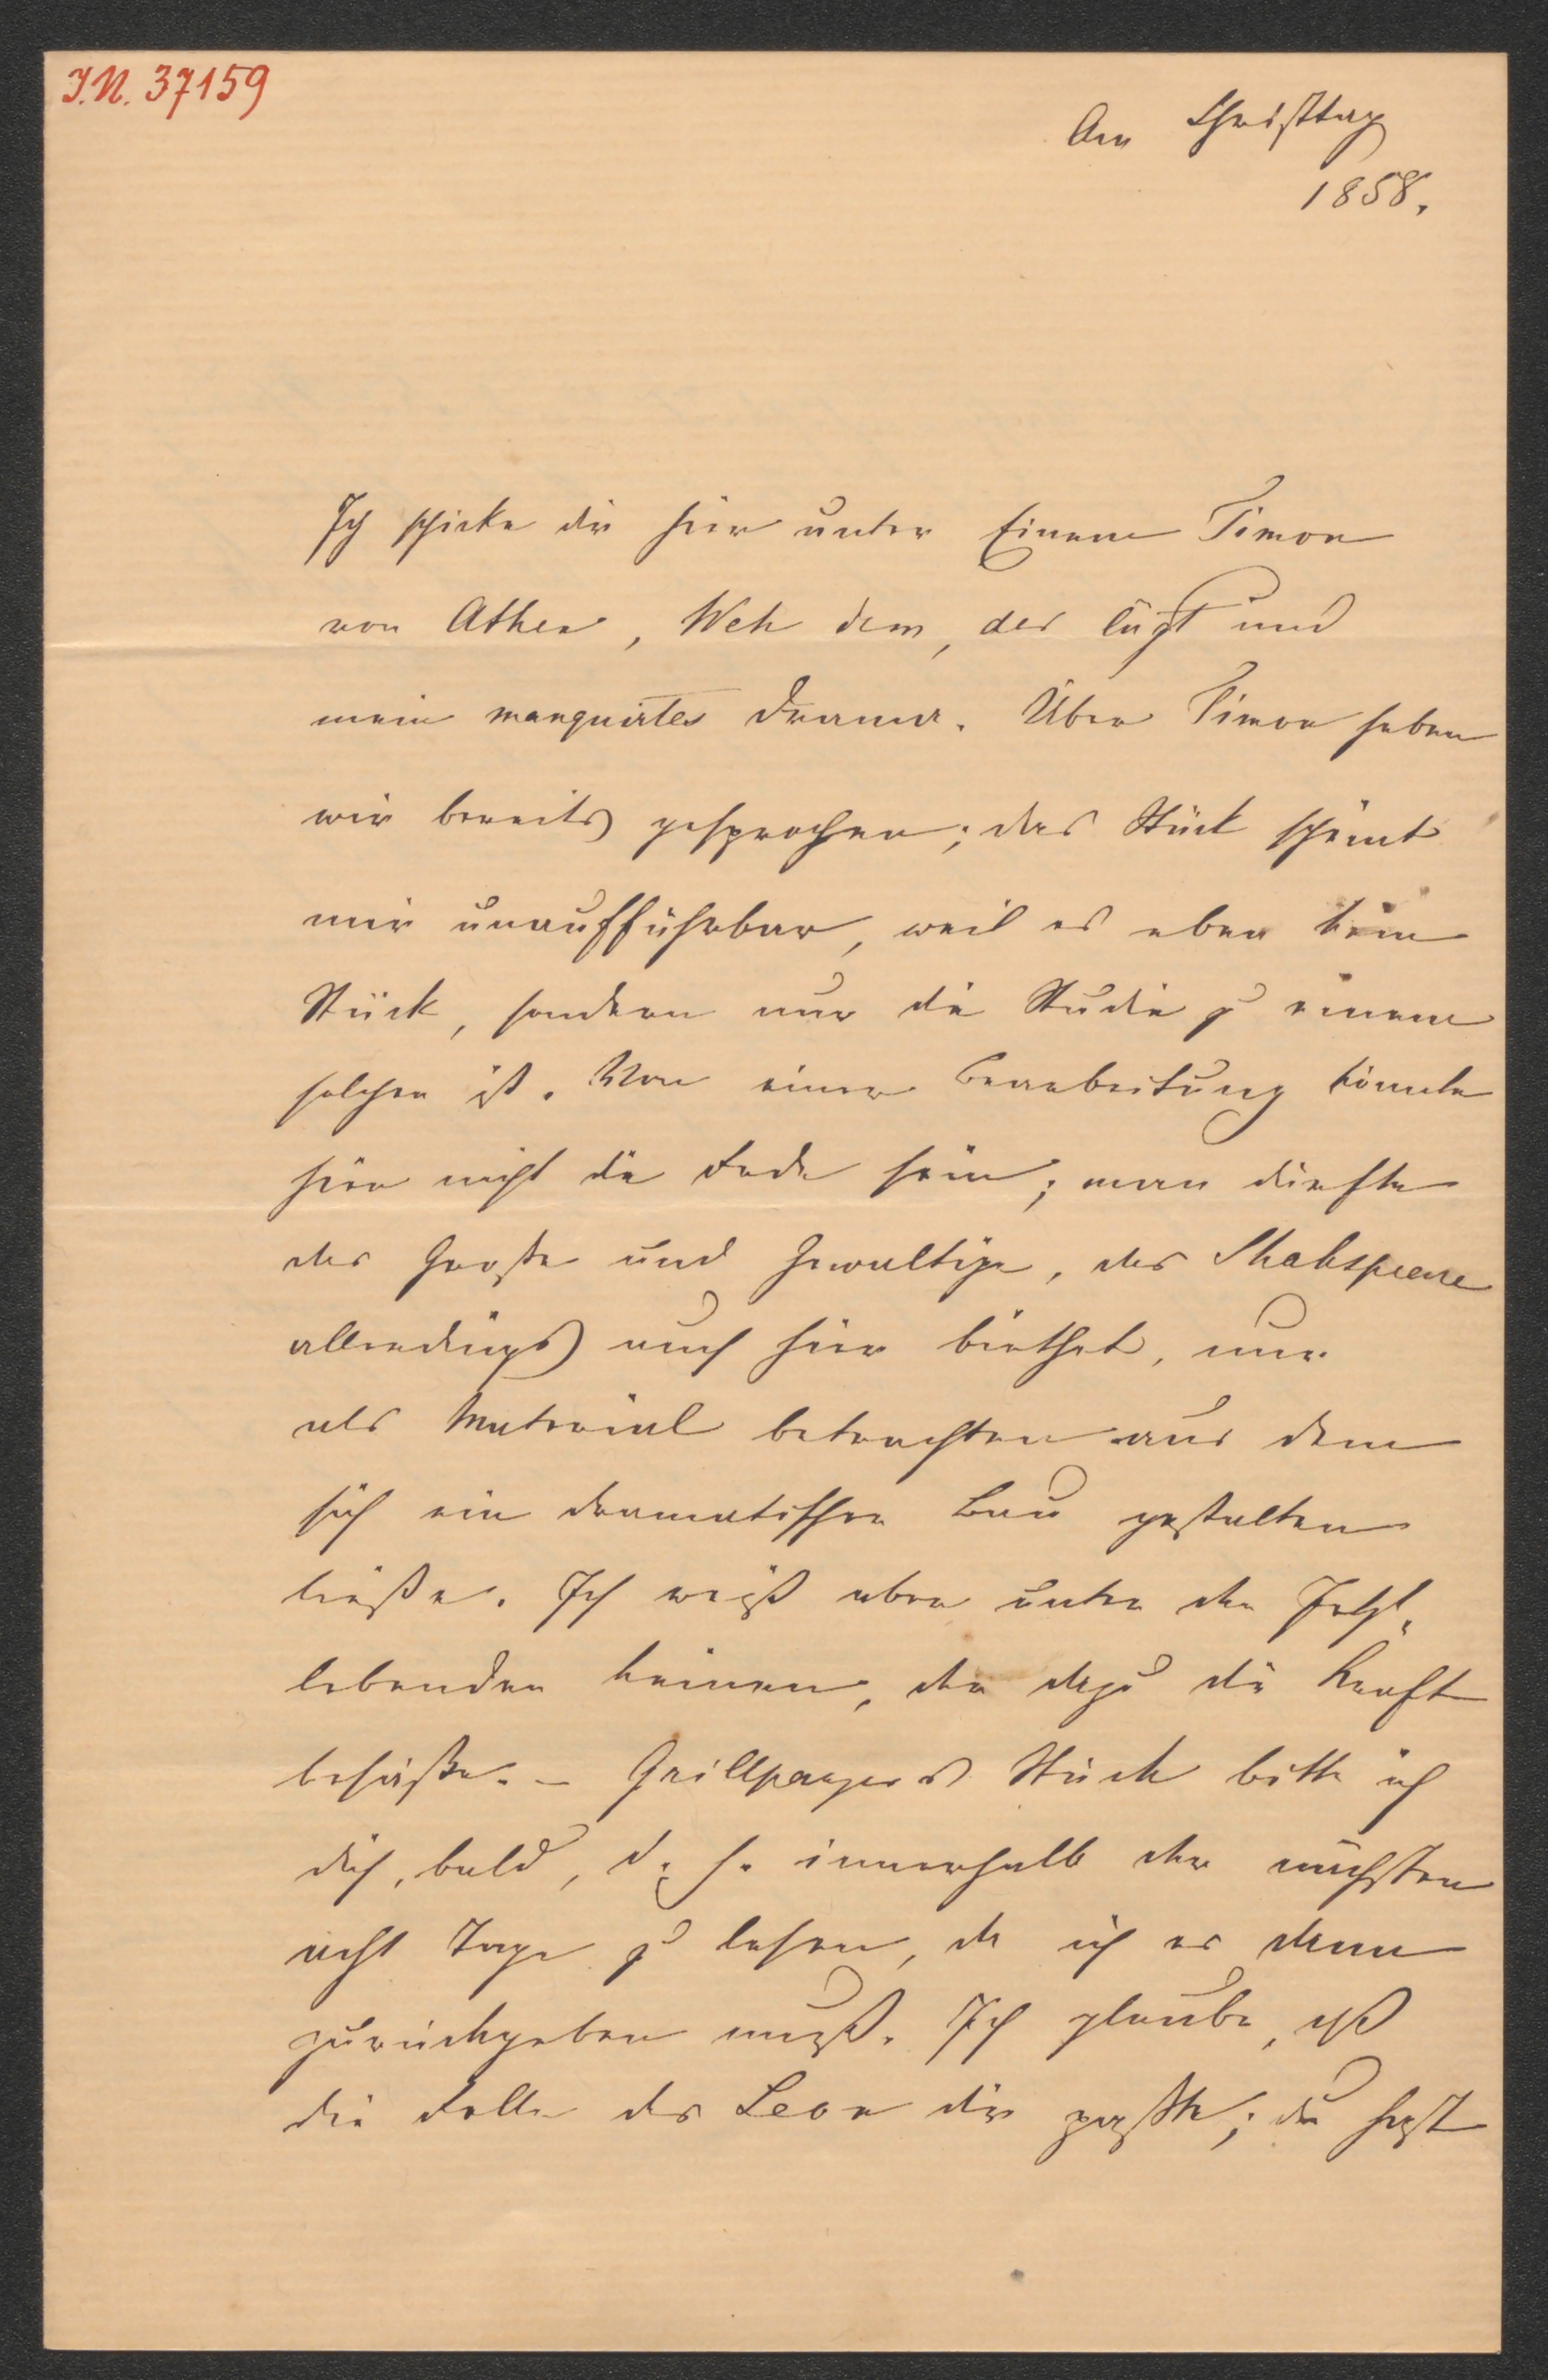 I.N. 37159
Am Christtag
1858.
Ich schicke dir hier unter Einem Timon
von Athen, Weh dem, der lügt und
mein marquirtes Drama. Über Timon haben
wir bereits gesprochen; das Stück scheint
mir unaufführbar, weil es eben kein
Stück, sondern nur die Studie zu einem
solchen ist. Von einer Bearbeitung könnte
hier nicht die Rede sein; man dürfte
das Große und Gewaltige, das Shakspeare
allerdings auch hier biethet, nur
als Material betrachten aus dem
sich ein dramatischer Bau gestalten
ließe. Ich weiß aber unter den Jetzt„
lebenden keinen, der dazu die Kraft
besäße. – Grillparzers Stück bitte ich
dich, bald, d. h. innerhalb der nächsten
acht Tage zu lesen, da ich es dann
zurückgeben muß. Ich glaube, daß
die Rolle des Leon dir paßte; du hast